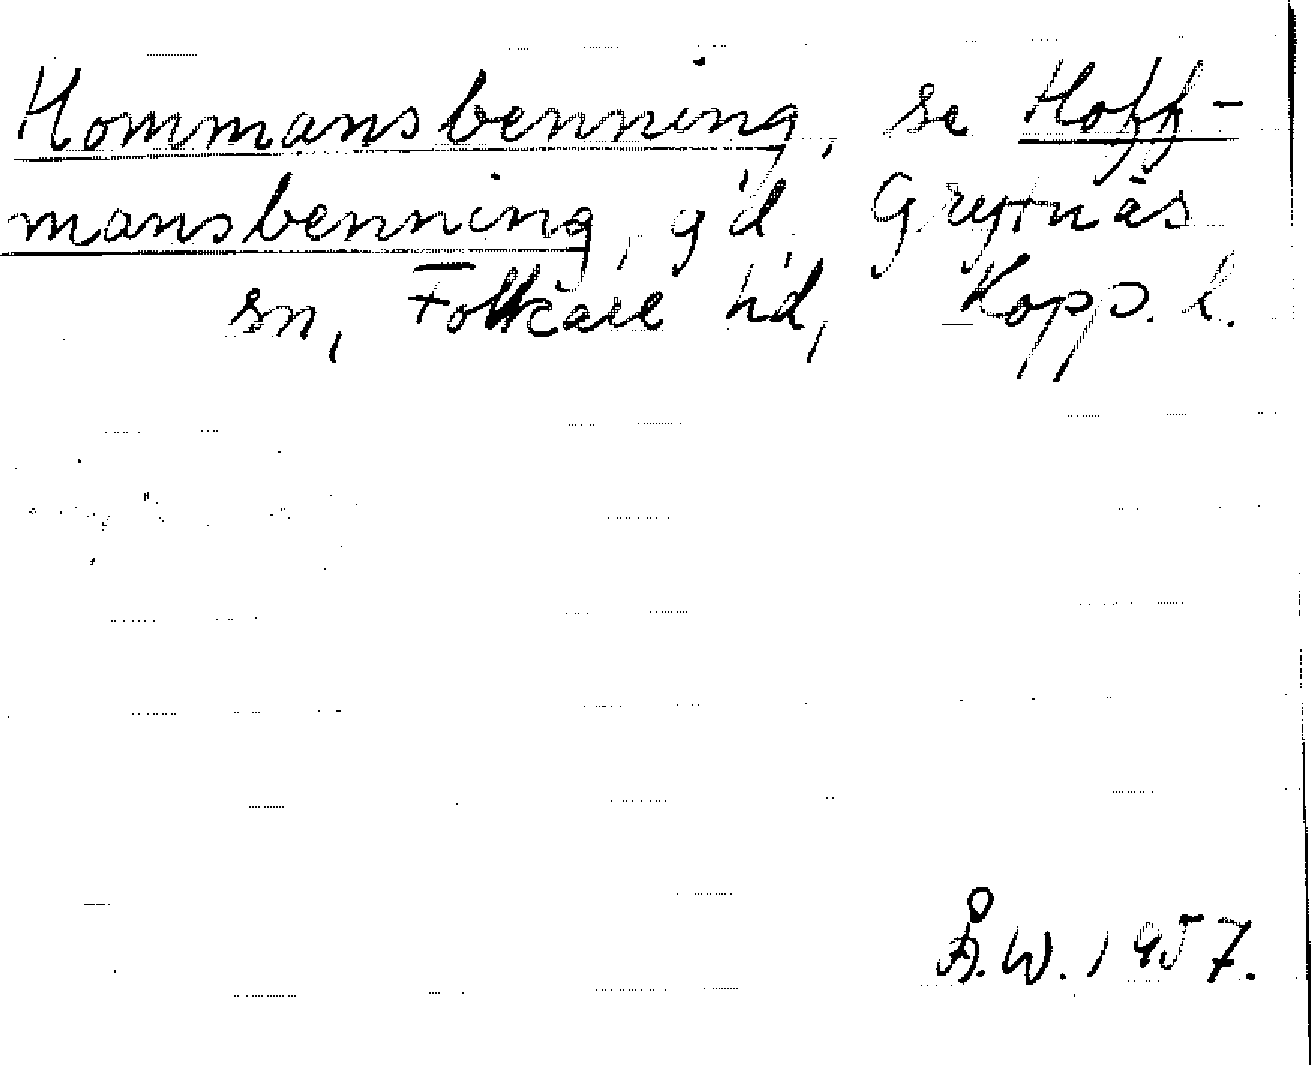 Hommansbenning, se Hoff-
mansbenning, g'd, Grytnäs
sn, Folkare hd, Kopp. l.
Å.W. 1957.